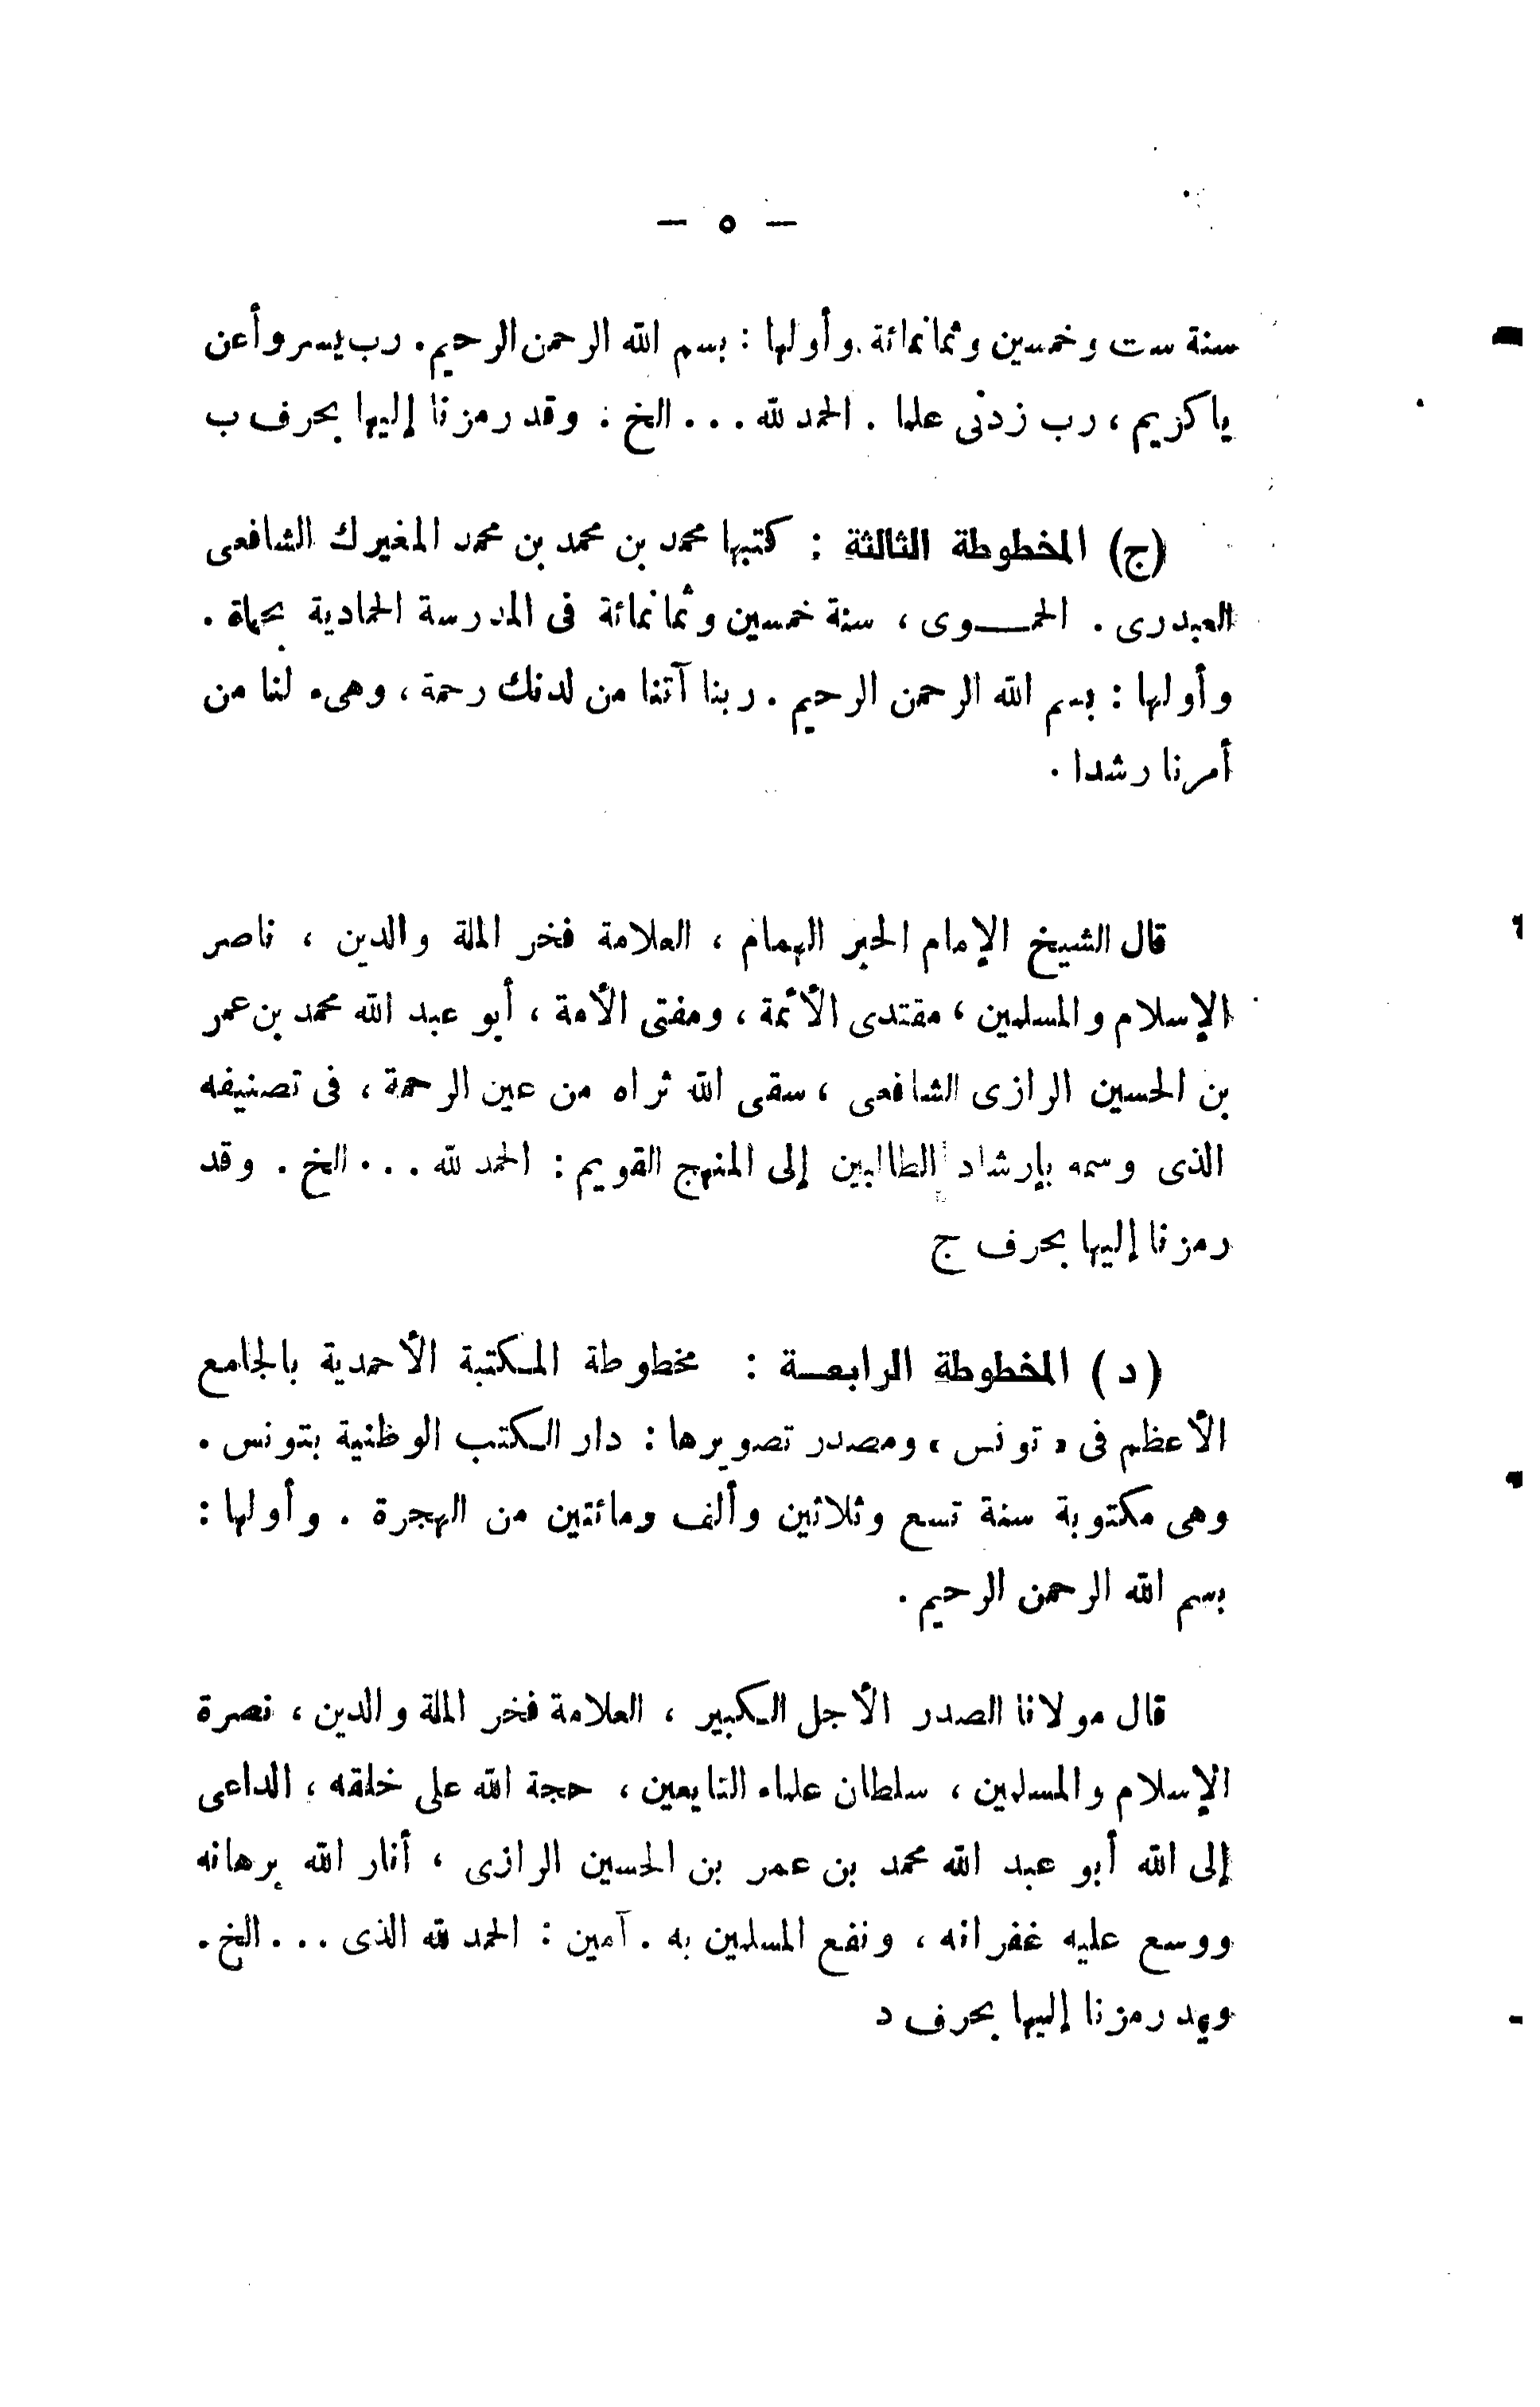 — ٥ —
سنة ست وخمسين وثمانمائة وأولها : بسم الله الرحمن الرحيم. رب يسر وأعن
يا كريم ، رب زدنى علما . الحمد لله ... الخ . وقد رمزنا إليها بحرف ب
(ج) المخطوطة الثالثة : كتبها محمد بن محمد بن محمد المغيرك الشافعى
العبدرى . الحمــوى ، سنة خمسين وثمانمائة فى المدرسة الحمادية بحماة .
وأولها : بسم الله الرحمن الرحيم . ربنا آتنا من لدنك رحمة ، وهىء لنا من
أمرنا رشدا .
قال الشيخ الإمام الحبر الهمام ، العلامة فخر الملة والدين ، ناصر
الإسلام والمسلمين ، مقتدى الأئمة ، ومفتى الأمة ، أبو عبد الله محمد بن عمر
بن الحسين الرازى الشافعى ، سقى الله ثراه من عين الرحمة ، فى تصنيفه
الذى وسمه بإرشاد الطالبين إلى المنهج القويم : الحمد لله ... الخ . وقد
رمزنا إليها بحرف ج
( د ) المخطوطة الرابعــة : مخطوطة المكتبة الأحمدية بالجامع
الأعظم فى « تونس » ومصدر تصويرها : دار الكتب الوظنية بتونس .
وهى مكتوبة سنة تسع وثلاثين وألف ومائتين من الهجرة . وأولها :
بسم الله الرحمن الرحيم .
قال مولانا الصدر الأجل الكبير ، العلامة فخر الملة والدين ، نصرة
الإسلام والمسلمين ، سلطان علماء التابعين ، حجة الله على خلقه ، الداعى
إلى الله أبو عبد الله محمد بن عمر بن الحسين الرازى ، أنار الله برهانه
ووسع عليه غفرانه ، ونفع المسلمين به . آمين : الحمد لله الذى ... الخ .
وقد رمزنا إليها بحرف د